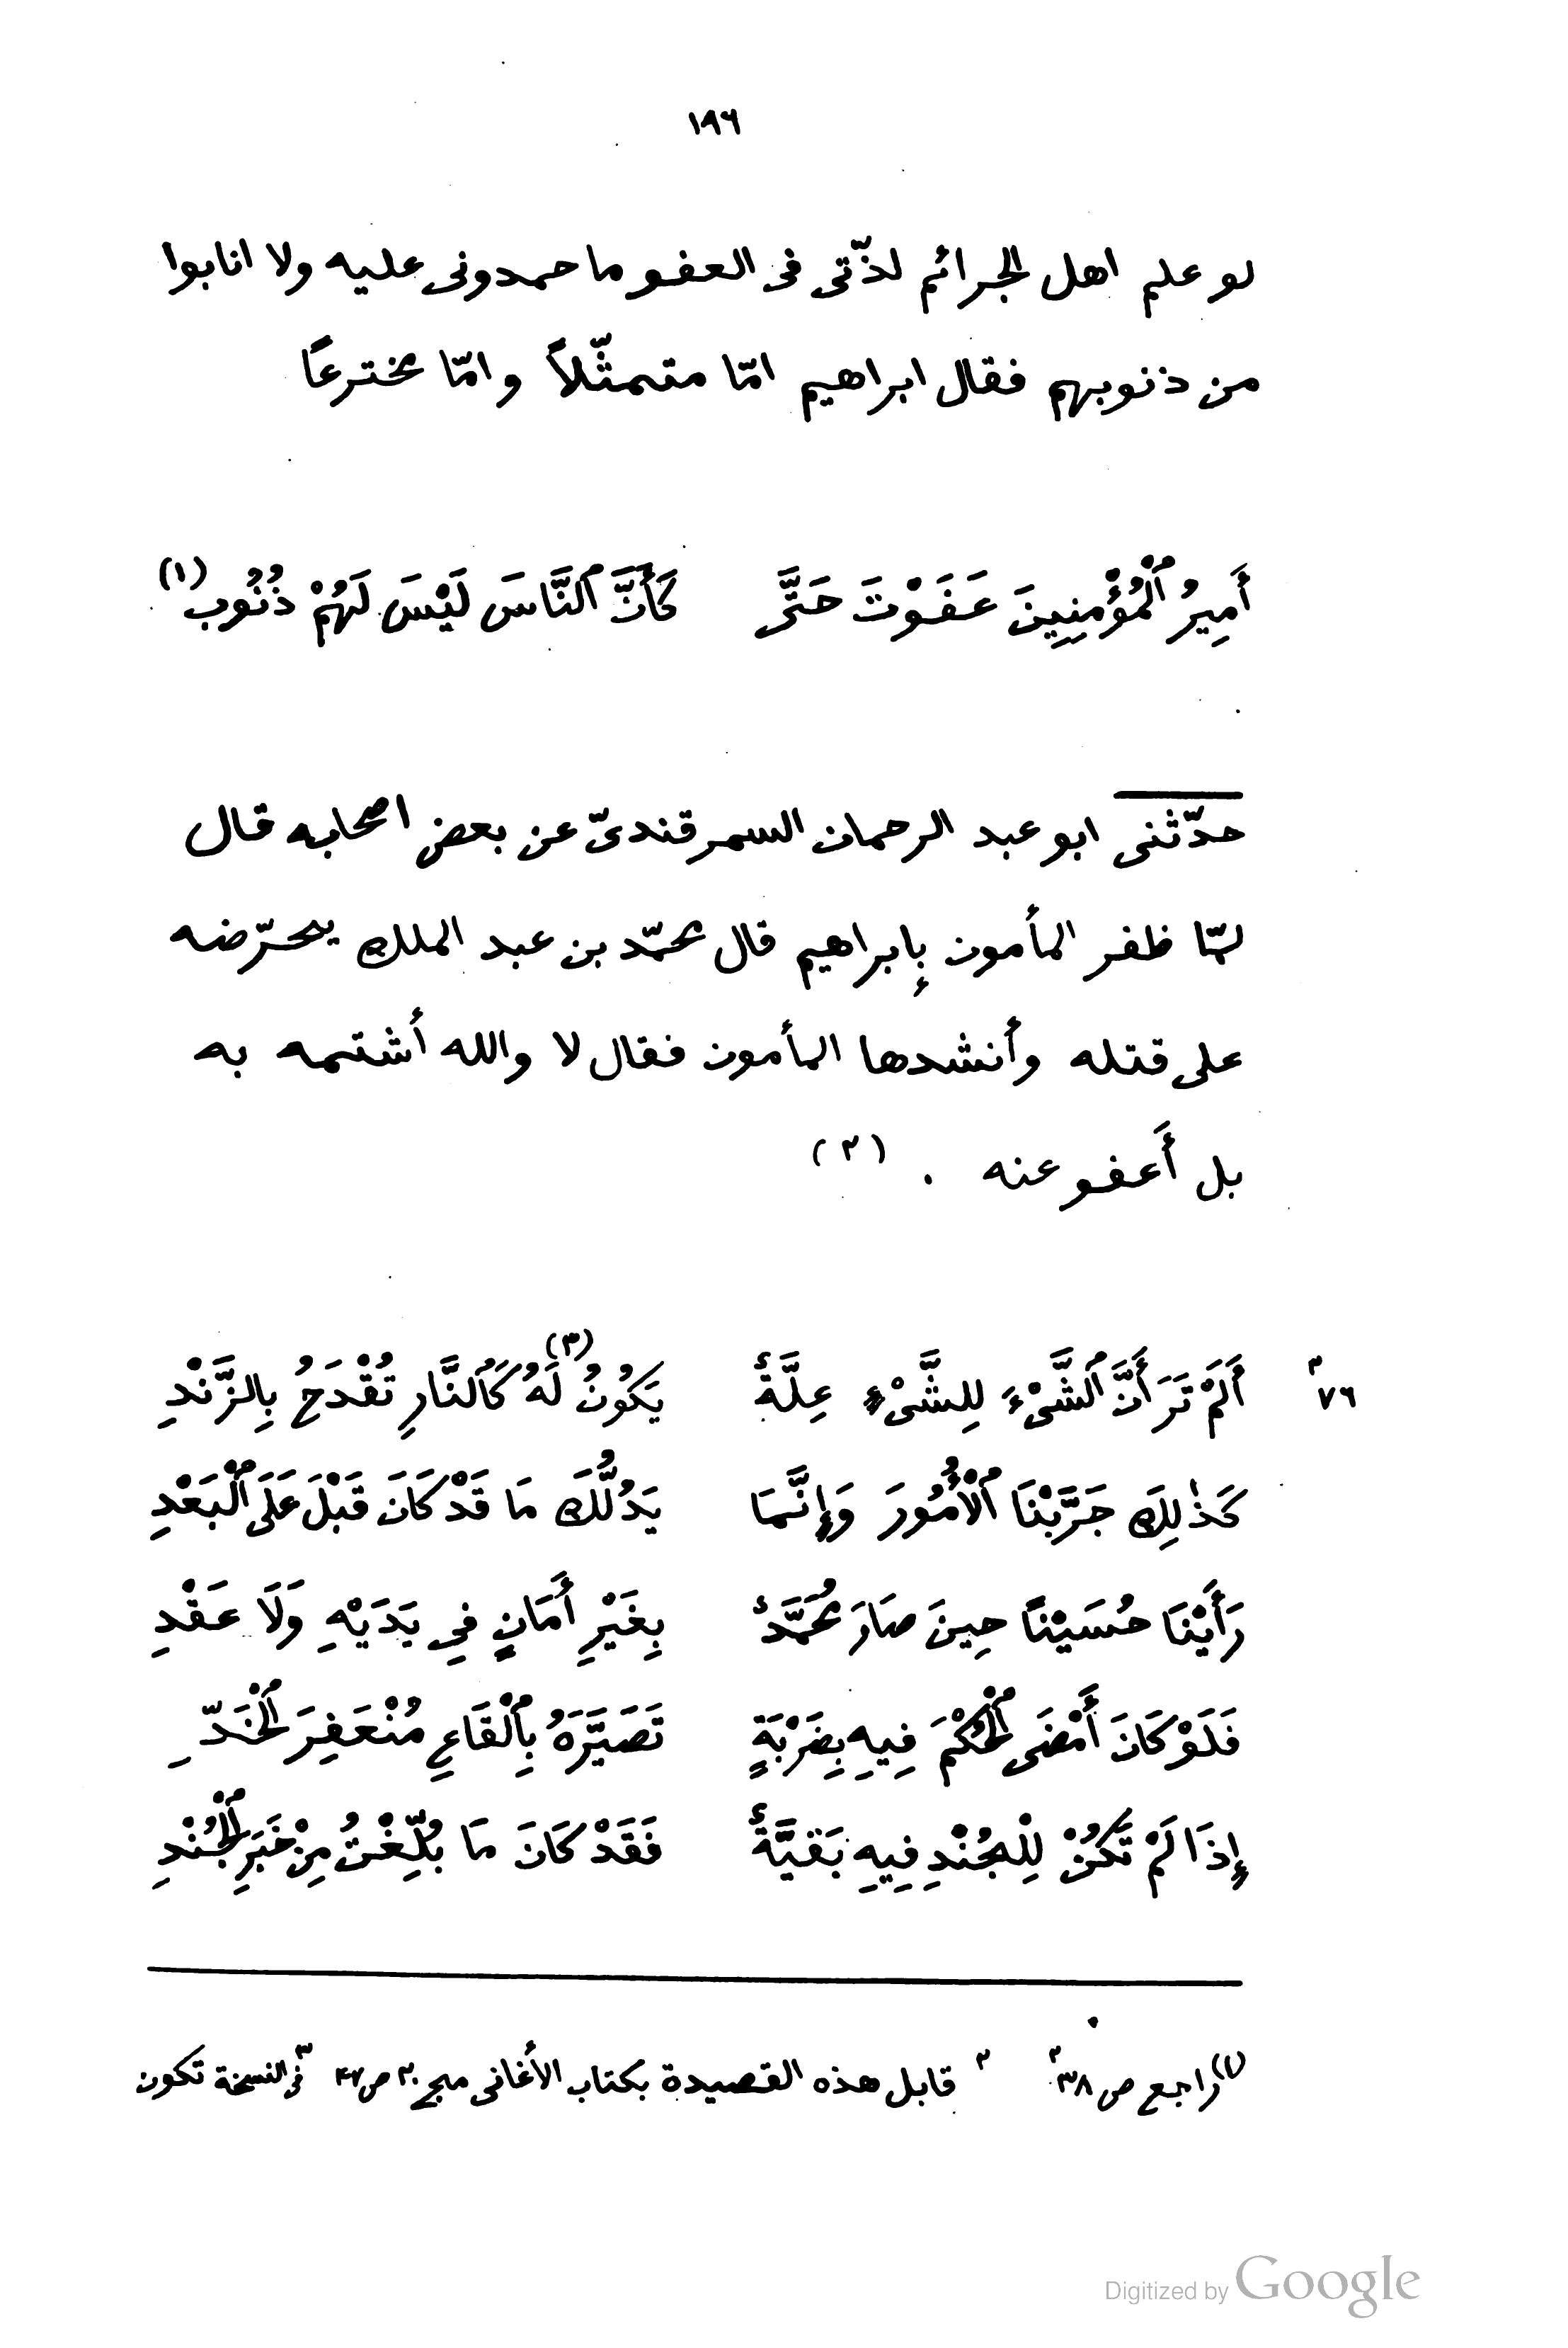 ١٩٦
لو علم اهل الجرائم لذّتى فى العفو ما حمدونى عليه ولا انابوا
من ذنوبهم فقال ابراهيم امّا متمثّلاً وامّا مخترعاً
أَمِيرُ ٱلْمُؤْمِنِينَ عَفَوْتَ حَتَّى كَأَنَّ ٱلنَّاسَ لَيْسَ لَهُمْ ذُنُوب (١)
حدّثنى ابو عبد الرحمان السمرقندىّ عن بعض اصحابه قال
لمّا ظفر المأمون بإبراهيم قال محمّد بن عبد الملك يحرّضه
على قتله وأنشدها المأمون فقال لا والله أشتمه به
بل أَعفو عنه . (٢)
٧٦ أَلَمْ تَرَ أَنَّ ٱلشَّىْءَ لِلشَّىْءِ عِلَّةٌ يَكُونُ (٣) لَهُ كَٱلنَّارِ تُقْدَحُ بِالزَّنْدِ
كَذٰلِكَ جَرَّبْنَا ٱلْأُمُورَ وَإِنَّمَا يَدُلُّكَ مَا قَدْ كَانَ قَبْلَ عَلَى ٱلْبَعْدِ
رَأَيْنَا حُسَيْناً حِينَ صَارَ مُحَمَّدٌ بِغَيْرِ أَمَانٍ فِي يَدَيْهِ وَلَا عَقْدِ
فَلَوْ كَانَ أَمْضَى ٱلْحُكْمَ فِيهِ بِضَرْبَةٍ تَصَيَّرَهُ بِٱلْقَاعِ مُنْعَفِرَ ٱلْخَدِّ
إِذَا لَمْ تَكُنْ لِلْجُنْدِ فِيهِ بَقيَّةٌ فَقَدْ كَانَ مَا بُلِّغْتُ مِنْ خَبَرِ ٱلْجُنْدِ
(١) راجع ص ٣٨ ٢ قابل هذه القصيدة بكتاب الأغانى مج ٢٠ ص ٤٧ ٣ فى النسخة تكون
Digitized by Google